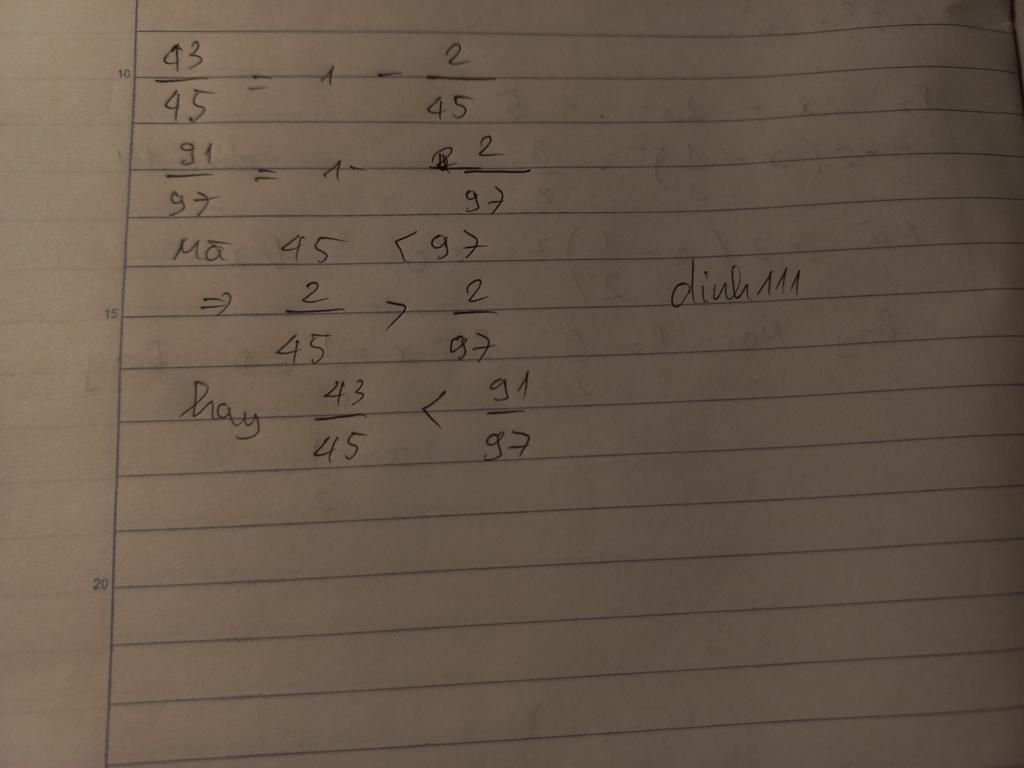 10 43/45 = 1 - 2/45
91/97 = 1 - 2/97
Mà 45 < 97
15 => 2/45 > 2/97 dinh111
hay 43/45 < 91/97
20